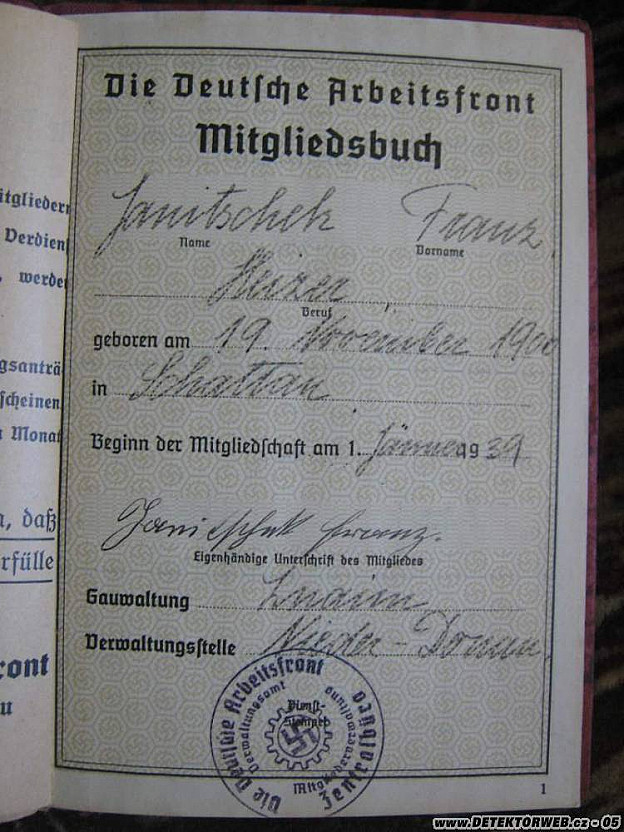 itgliedern
Verdienst
, werden
gsanträ
scheinen
n Monat
n, daß
rfülle
ront
u
Die Deutsche Arbeitsfront
Mitgliedsbuch
Janitschek Franz
Name Vorname
Heizer
Beruf
geboren am 19. November 1900
in Schattau
Beginn der Mitgliedschaft am 1. Jänner 1939
Janitschek Franz.
Eigenhändige Unterschrift des Mitgliedes
Gauwaltung
Verwaltungsstelle Nieder-Donau
Die Deutsche Arbeitsfront
Verwaltungsamt
Dienst-
Stempel
Zentralbüro
1
www.DETEKTORWEB.cz - 05